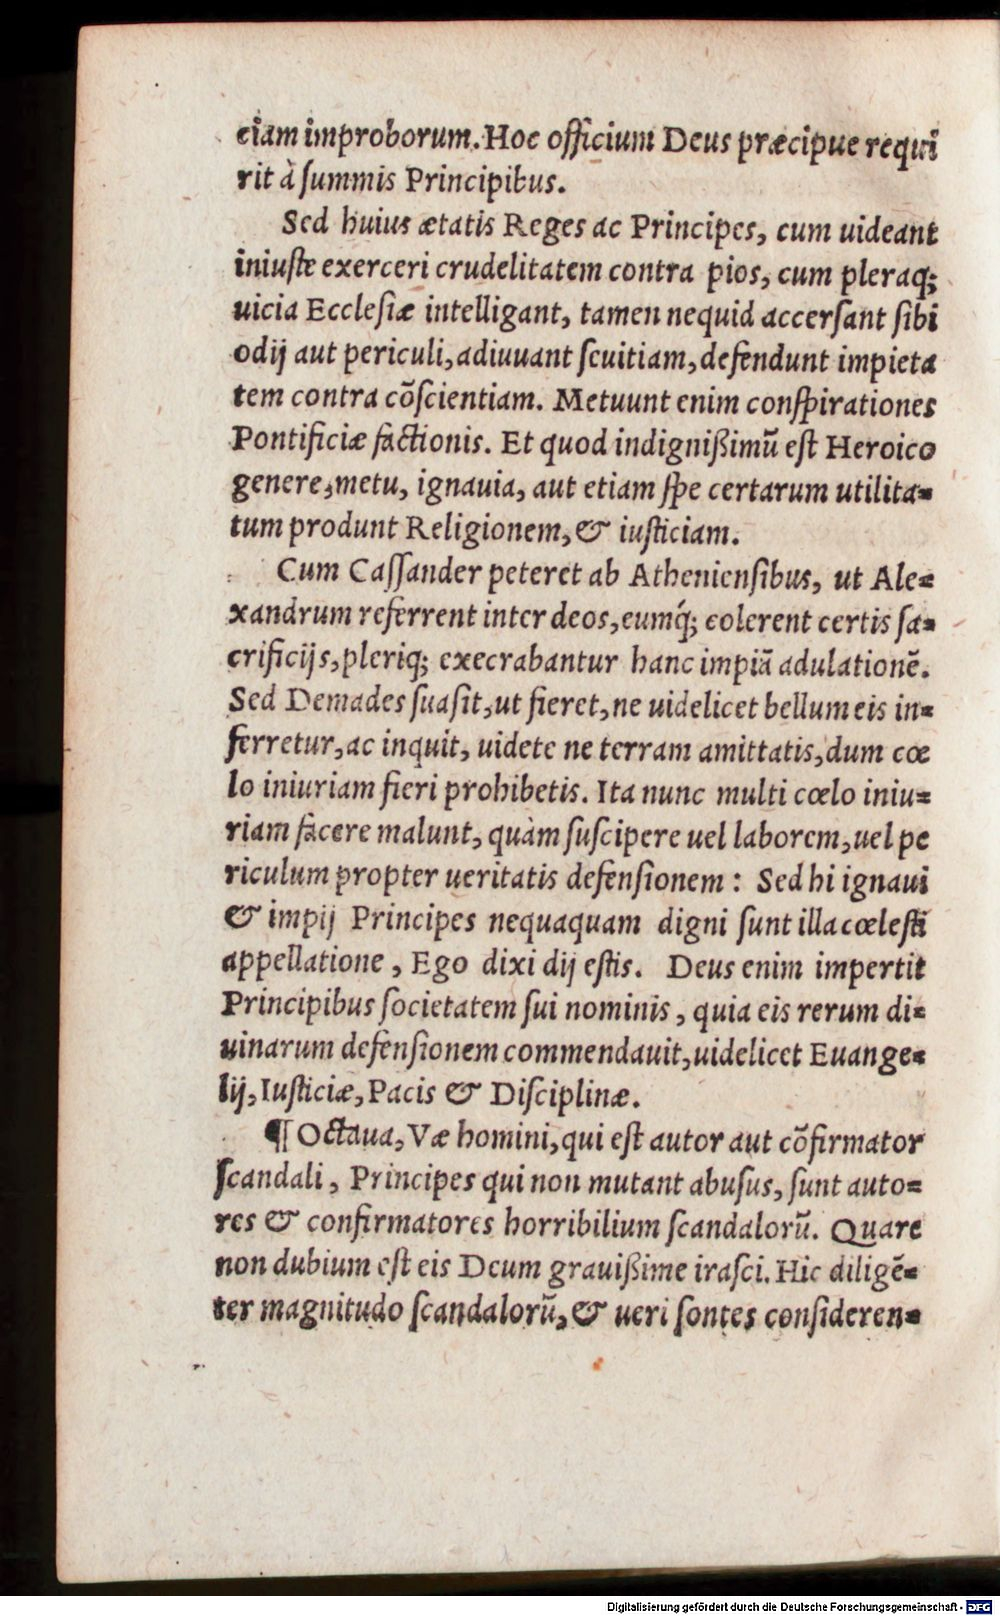 ciam improborum. Hoc officium Deus præcipue requi
rit à summis Principibus.
Sed huius ætatis Reges ac Principes, cum uideant
iniuste exerceri crudelitatem contra pios, cum pleraq;
uicia Ecclesiæ intelligant, tamen nequid accersant sibi
odij aut periculi, adiuuant scuitiam, defendunt impieta
tem contra cõscientiam. Metuunt enim conspirationes
Pontificiæ factionis. Et quod indignißimũ est Heroico
genere, metu, ignauia, aut etiam spe certarum utilita=
tum produnt Religionem, & iusticiam.
Cum Cassander peteret ab Atheniensibus, ut Ale=
xandrum referrent inter deos, eumq́; colerent certis sa=
crificijs, pleriq; execrabantur hanc impiã adulationẽ.
Sed Demades suasit, ut fieret, ne uidelicet bellum eis in=
ferretur, ac inquit, uidete ne terram amittatis, dum cœ
lo iniuriam fieri prohibetis. Ita nunc multi cœlo iniu=
riam facere malunt, quàm suscipere uel laborem, uel pe
riculum propter ueritatis defensionem: Sed hi ignaui
& impij Principes nequaquam digni sunt illa cœlesti
appellatione, Ego dixi dij estis. Deus enim impertit
Principibus societatem sui nominis, quia eis rerum di=
uinarum defensionem commendauit, uidelicet Euange=
lij, Iusticiæ, Pacis & Disciplinæ.
¶ Octaua, Væ homini, qui est autor aut cõfirmator
scandali, Principes qui non mutant abusus, sunt auto=
res & confirmatores horribilium scandalorũ. Quare
non dubium est eis Deum grauißime irasci. Hic diligẽ=
ter magnitudo scandalorũ, & ueri fontes consideren=
Digitalisierung gefördert durch die Deutsche Forschungsgemeinschaft - DFG